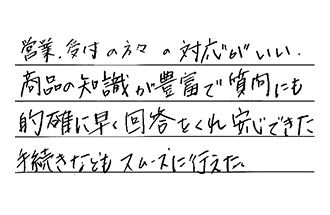 営業、受付の方々の対応がいい。
商品の知識が豊富で質問にも
的確に早く回答をくれ安心できた
手続きなどもスムーズに行えた。